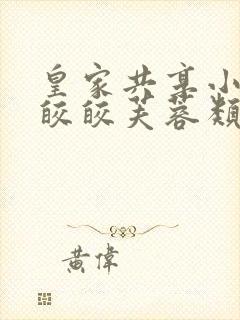 皇家共享小
皎皎芙蓉類
黃偉